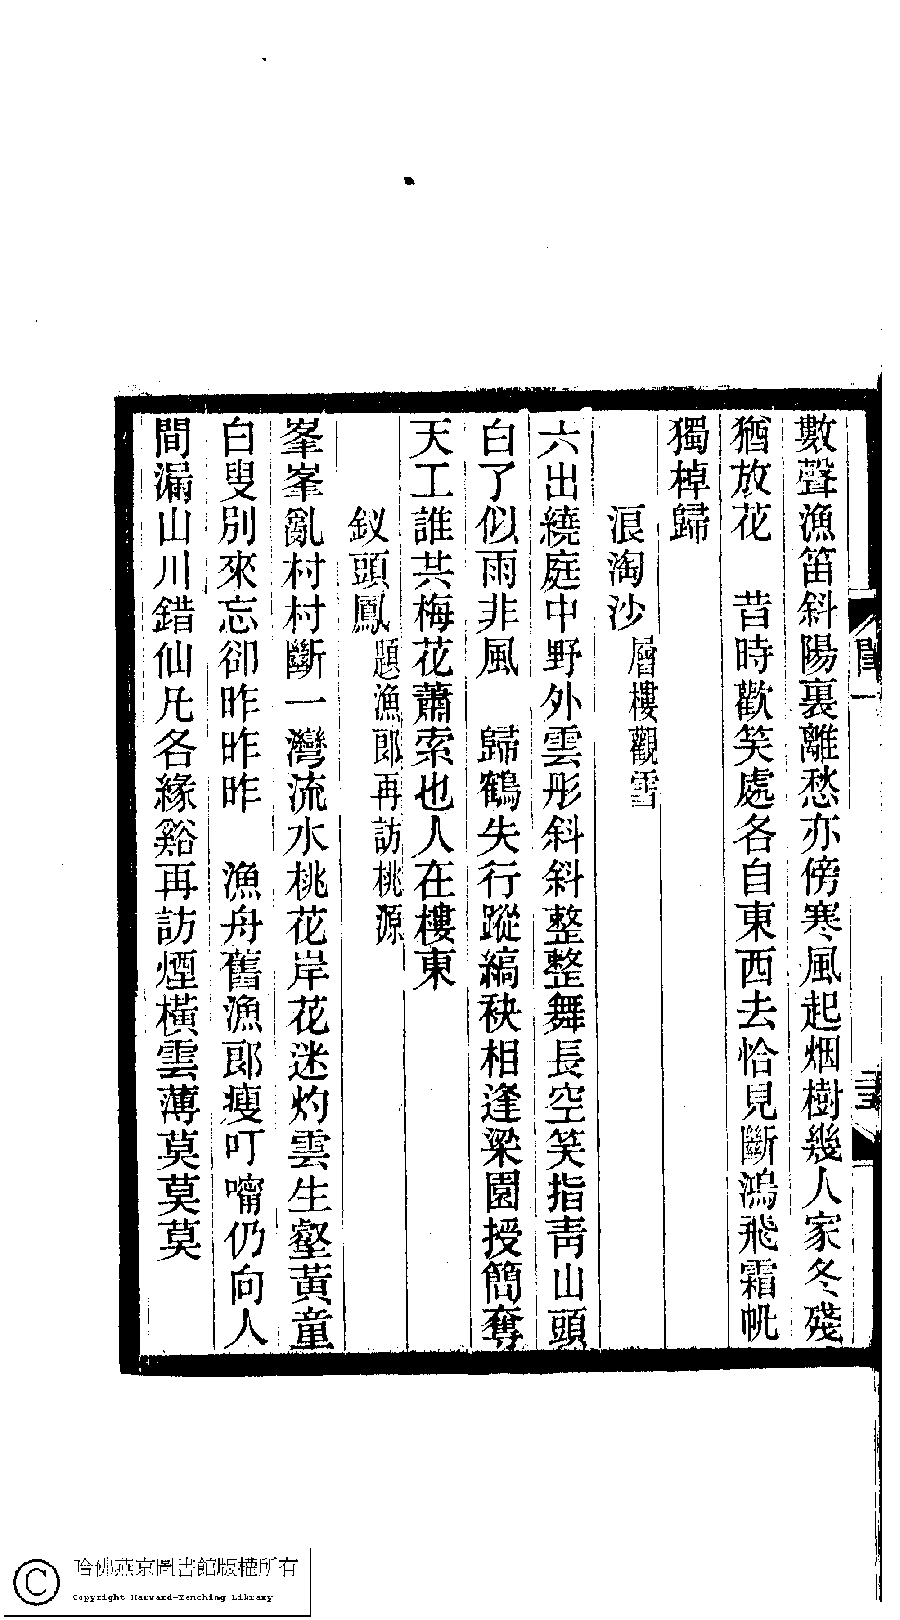 數聲漁笛斜陽裏離愁亦傍寒風起烟樹幾人家冬殘
猶放花　昔時歡笑處各自東西去恰見斷鴻飛霜帆
獨棹歸
浪淘沙層樓觀雪
六出繞庭中野外雲彤斜斜整整舞長空笑指靑山頭
白了似雨非風　歸鶴失行蹤縞袂相逢梁園授簡奪
天工誰共梅花蕭索也人在樓東
釵頭鳳題漁郞再訪桃源
峯峯亂村村斷一灣流水桃花岸花迷灼雲生壑黃童
白叟別來忘卻昨昨昨　漁舟舊漁郞瘦叮嚀仍向人
間漏山川錯仙凡各緣谿再訪煙橫雲薄莫莫莫
哈佛燕京圖書館版權所有
Copyright Harvard-Yenching Library